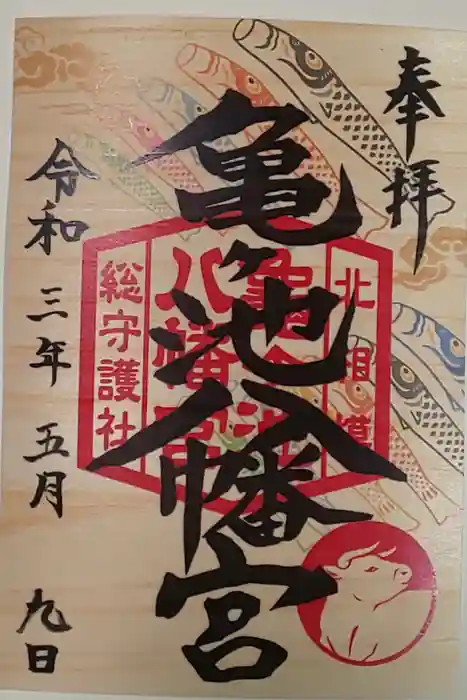 奉拝
亀ヶ池八幡宮
北相模
亀ヶ池
八幡宮
総守護社
令和三年五月九日